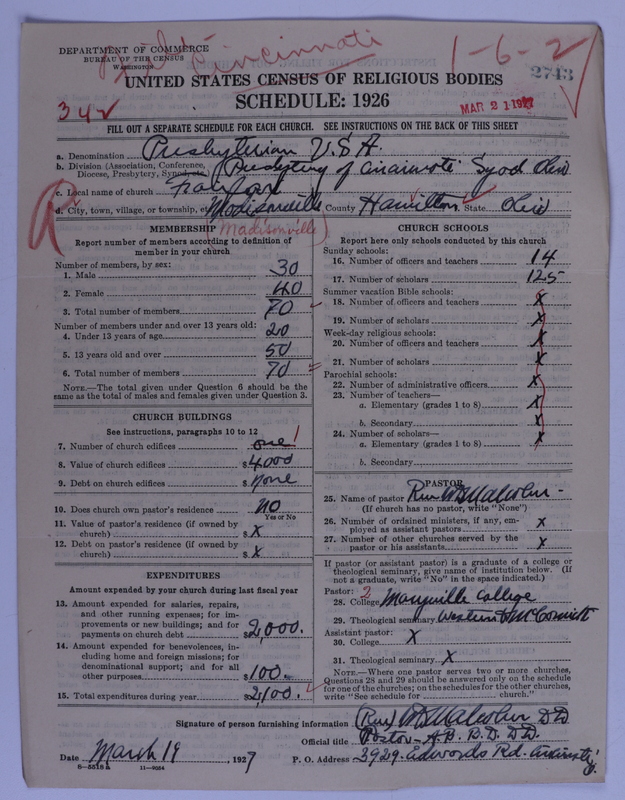 DEPARTMENT OF COMMERCE
BUREAU OF THE CENSUS
WASHINGTON
Cincinnati
1-6-2
2743
UNITED STATES CENSUS OF RELIGIOUS BODIES
SCHEDULE: 1926
34
MAR 21 1927
FILL OUT A SEPARATE SCHEDULE FOR EACH CHURCH. SEE INSTRUCTIONS ON THE BACK OF THIS SHEET
a. Denomination Presbyterian U.S.A.
b. Division (Association, Conference, Diocese, Presbytery, Synod, etc.) Presbytery of Cincinnati Synod Ohio
c. Local name of church
d. City, town, village, or township, etc. Madisonville County Hamilton State Ohio
R
(Madisonville)
MEMBERSHIP
Report number of members according to definition of member in your church
Number of members, by sex:
1. Male 30
2. Female 40
3. Total number of members 70
Number of members under and over 13 years old:
4. Under 13 years of age 20
5. 13 years old and over 50
6. Total number of members 70
NOTE.—The total given under Question 6 should be the same as the total of males and females given under Question 3.
CHURCH BUILDINGS
See instructions, paragraphs 10 to 12
7. Number of church edifices one 1
8. Value of church edifices $4000
9. Debt on church edifices $None
10. Does church own pastor's residence No
Yes or No
11. Value of pastor's residence (if owned by church) $ X
12. Debt on pastor's residence (if owned by church) $ X
EXPENDITURES
Amount expended by your church during last fiscal year
13. Amount expended for salaries, repairs, and other running expenses; for improvements or new buildings; and for payments on church debt $2,000.
14. Amount expended for benevolences, including home and foreign missions; for denominational support; and for all other purposes $100.
15. Total expenditures during year $2,100.
CHURCH SCHOOLS
Report here only schools conducted by this church
Sunday schools:
16. Number of officers and teachers 14
17. Number of scholars 125
Summer vacation Bible schools:
18. Number of officers and teachers X
19. Number of scholars X
Week-day religious schools:
20. Number of officers and teachers X
21. Number of scholars X
Parochial schools:
22. Number of administrative officers X
23. Number of teachers—
a. Elementary (grades 1 to 8) X
b. Secondary X
24. Number of scholars—
a. Elementary (grades 1 to 8) X
b. Secondary
PASTOR
25. Name of pastor Rev. Malcolm
(If church has no pastor, write "None")
26. Number of ordained ministers, if any, employed as assistant pastors X
27. Number of other churches served by the pastor or his assistants X
If pastor (or assistant pastor) is a graduate of a college or theological seminary, give name of institution below. (If not a graduate, write "No" in the space indicated.)
Pastor: 2
28. College Maryville College
29. Theological seminary Western & McCormick
Assistant pastor:
30. College X
31. Theological seminary X
NOTE.—Where one pastor serves two or more churches, Questions 28 and 29 should be answered only on the schedule for one of the churches; on the schedules for the other churches, write "See schedule for church."
Signature of person furnishing information (Rev) Malcolm DD
Official title Pastor - A.B. B.D. DD.
Date March 19, 1927 P. O. Address 2929 Edwards Rd. Cincinnati O.
8-5518 a 11-9554